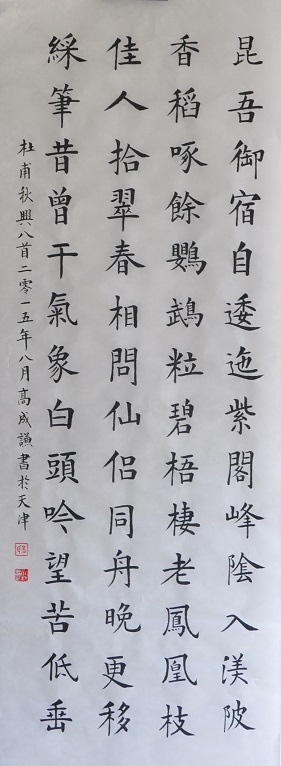 昆吾御宿自逶迤紫閣峰陰入渼陂
香稻啄餘鸚鵡粒碧梧棲老鳳凰枝
佳人拾翠春相問仙侶同舟晚更移
綵筆昔曾干氣象白頭吟望苦低垂
杜甫秋興八首二零一五年八月高成謙書於天津